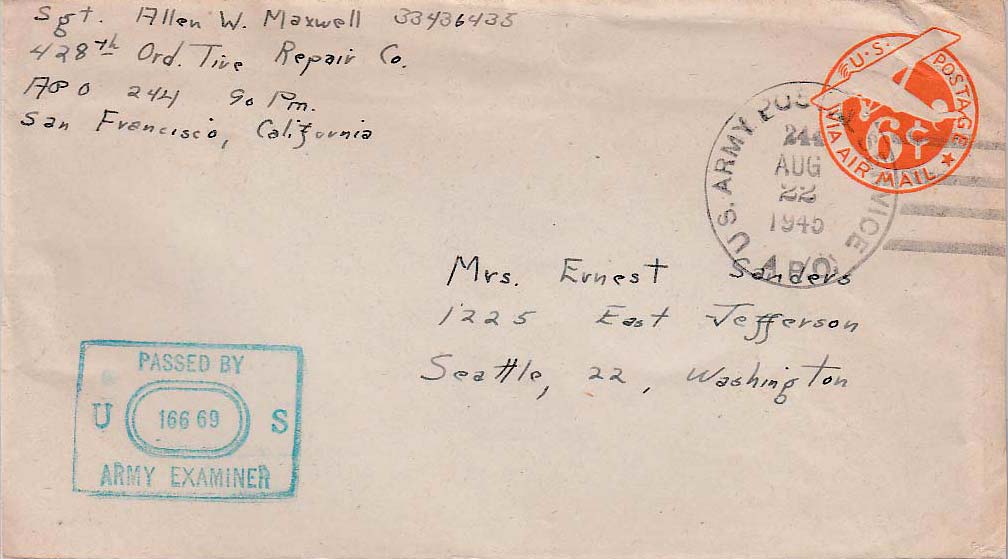 Sgt. Allen W. Maxwell 33436435
428th Ord. Tire Repair Co.
APO 244 % Pm.
San Francisco, California
U.S. POSTAGE
6¢
VIA AIR MAIL
U.S. ARMY POSTAL SERVICE
244
AUG
22
1945
A.P.O.
Mrs. Ernest Sanders
1225 East Jefferson
Seattle, 22, Washington
PASSED BY
U 16669 S
ARMY EXAMINER